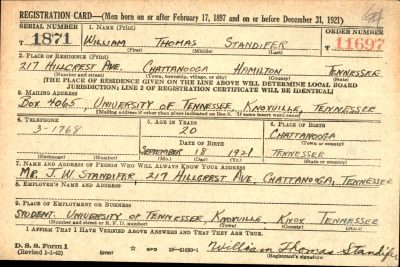 REGISTRATION CARD—(Men born on or after February 17, 1897 and on or before December 31, 1921)
SERIAL NUMBER 1. NAME (Print) ORDER NUMBER
T 1871 WILLIAM THOMAS STANDIFER T 11697
(First) (Middle) (Last)
2. PLACE OF RESIDENCE (Print)
217 HILLCREST AVE. CHATTANOOGA HAMILTON TENNESSEE
(Number and street) (Town, township, village, or city) (County) (State)
[THE PLACE OF RESIDENCE GIVEN ON THE LINE ABOVE WILL DETERMINE LOCAL BOARD
JURISDICTION; LINE 2 OF REGISTRATION CERTIFICATE WILL BE IDENTICAL]
3. MAILING ADDRESS
BOX 4065, UNIVERSITY OF TENNESSEE, KNOXVILLE, TENNESSEE
[Mailing address if other than place indicated on line 2. If same insert word same]
4. TELEPHONE 5. AGE IN YEARS 6. PLACE OF BIRTH
3-1768 20 CHATTANOOGA
DATE OF BIRTH (Town or county)
SEPTEMBER 18 1921 TENNESSEE
(Exchange) (Number) (Mo.) (Day) (Yr.) (State or country)
7. NAME AND ADDRESS OF PERSON WHO WILL ALWAYS KNOW YOUR ADDRESS
MR. J. W. STANDIFER, 217 HILLCREST AVE, CHATTANOOGA, TENNESSEE
8. EMPLOYER'S NAME AND ADDRESS
9. PLACE OF EMPLOYMENT OR BUSINESS
STUDENT. UNIVERSITY OF TENNESSEE, KNOXVILLE, KNOX TENNESSEE
(Number and street or R. F. D. number) (Town) (County) (State)
I AFFIRM THAT I HAVE VERIFIED ABOVE ANSWERS AND THAT THEY ARE TRUE.
D. S. S. Form 1
(Revised 1-1-42) GPO 16-21630-1 William Thomas Standifer
(Registrant's signature)